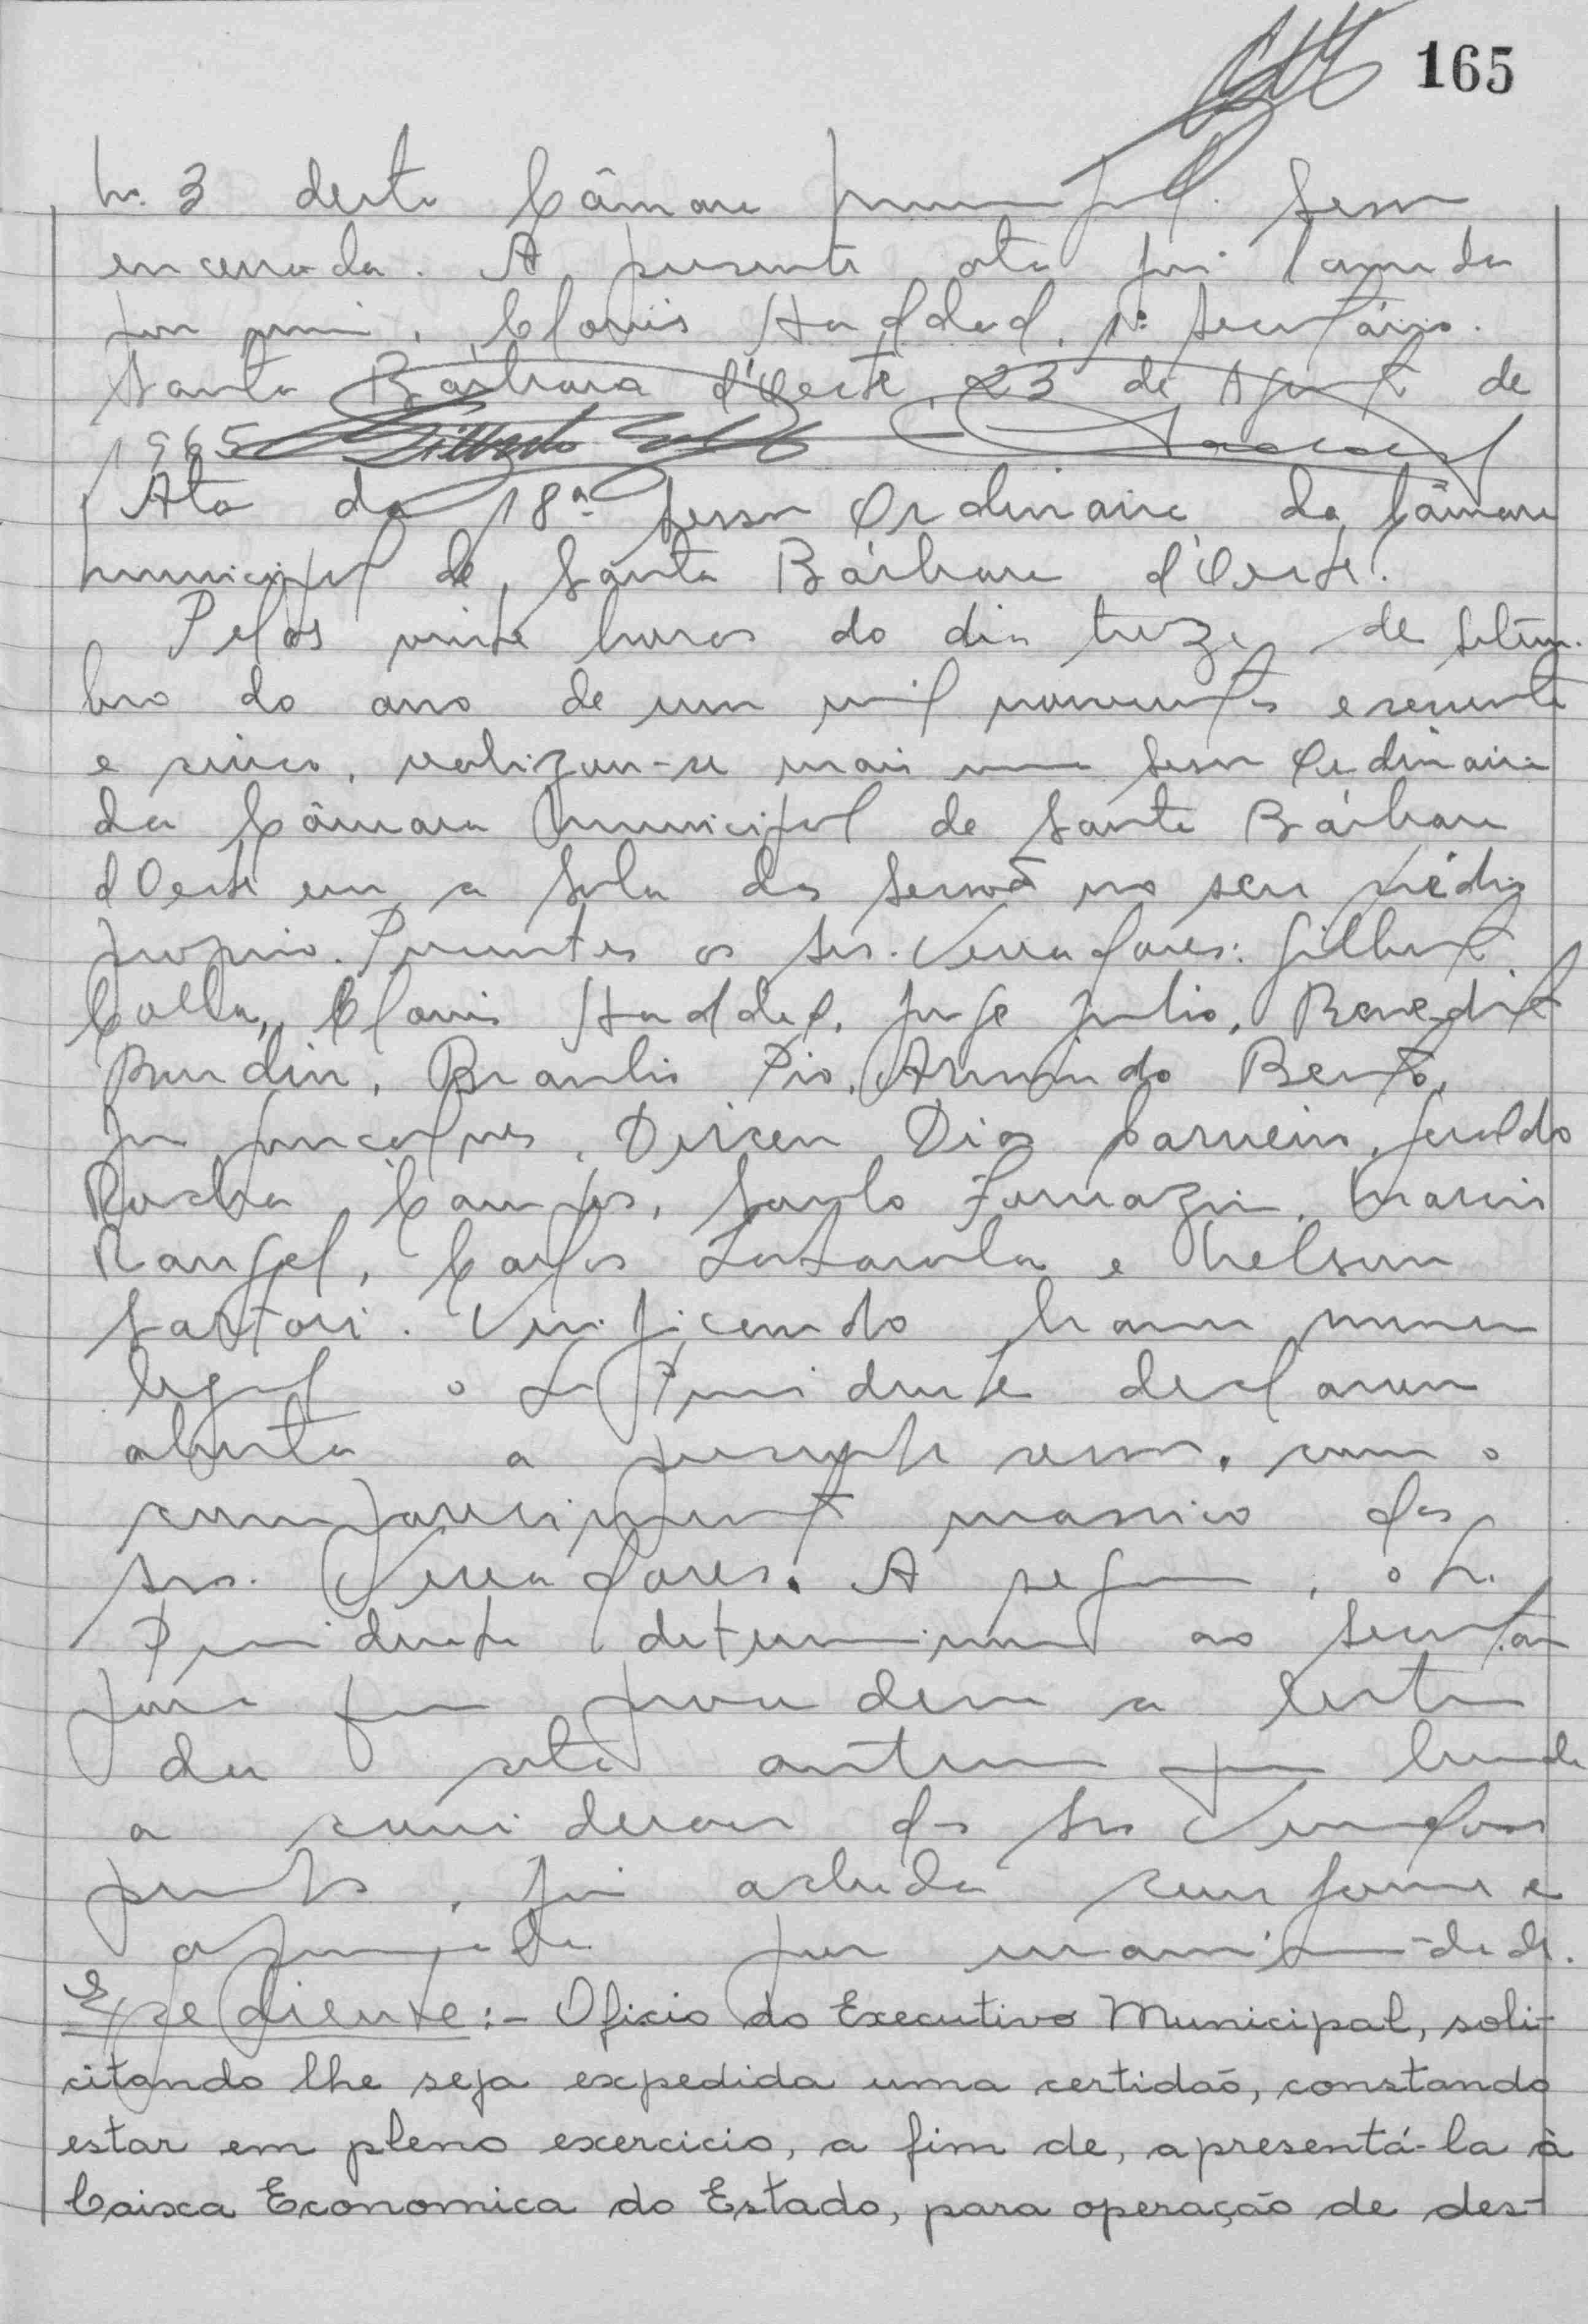 165
n. 3 desta Câmara Municipal. Sessão
encerrada. A presente ata foi lavrada
por mim, Clovis Haddad, 1º Secretário.
Santa Bárbara d'Oeste, 23 de Agosto de
1965
Ata da 18ª Sessão Ordinária da Câmara
Municipal de Santa Bárbara d'Oeste.
Pelas vinte horas do dia treze de Setem-
bro do ano de um mil novecentos e sessenta
e cinco, realizou-se mais uma Sessão Ordinária
da Câmara Municipal de Santa Bárbara
d'Oeste em a Sala das Sessões no seu prédio
proprio. Presentes os Srs. Vereadores: Gilberto
Colla, Clovis Haddad, Jorge Julio, Benedito
Braulio Pio, Armindo Bento,
Gonçalves, Dirceu Dias Carneiro, Geraldo
Rocha Campos, Saulo Fornazin, Marcio
Rangel, Carlos e Nelson
Sartori. Verificando haver numero
legal o Sr. Presidente declarou
aberta a presente sessão, com o
comparecimento massico dos
srs. Vereadores. A seguir, o Sr.
Presidente determinou ao Secretário
para que procedesse a leitura
da ata anterior que
a consideração dos Srs Vereadores
presentes, foi achada conforme e
aprovada por unanimidade.
Expediente:- Oficio do Executivo Municipal, soli-
citando lhe seja expedida uma certidão, constando
estar em pleno exercicio, a fim de, apresentá-la à
Caixa Economica do Estado, para operação de des-